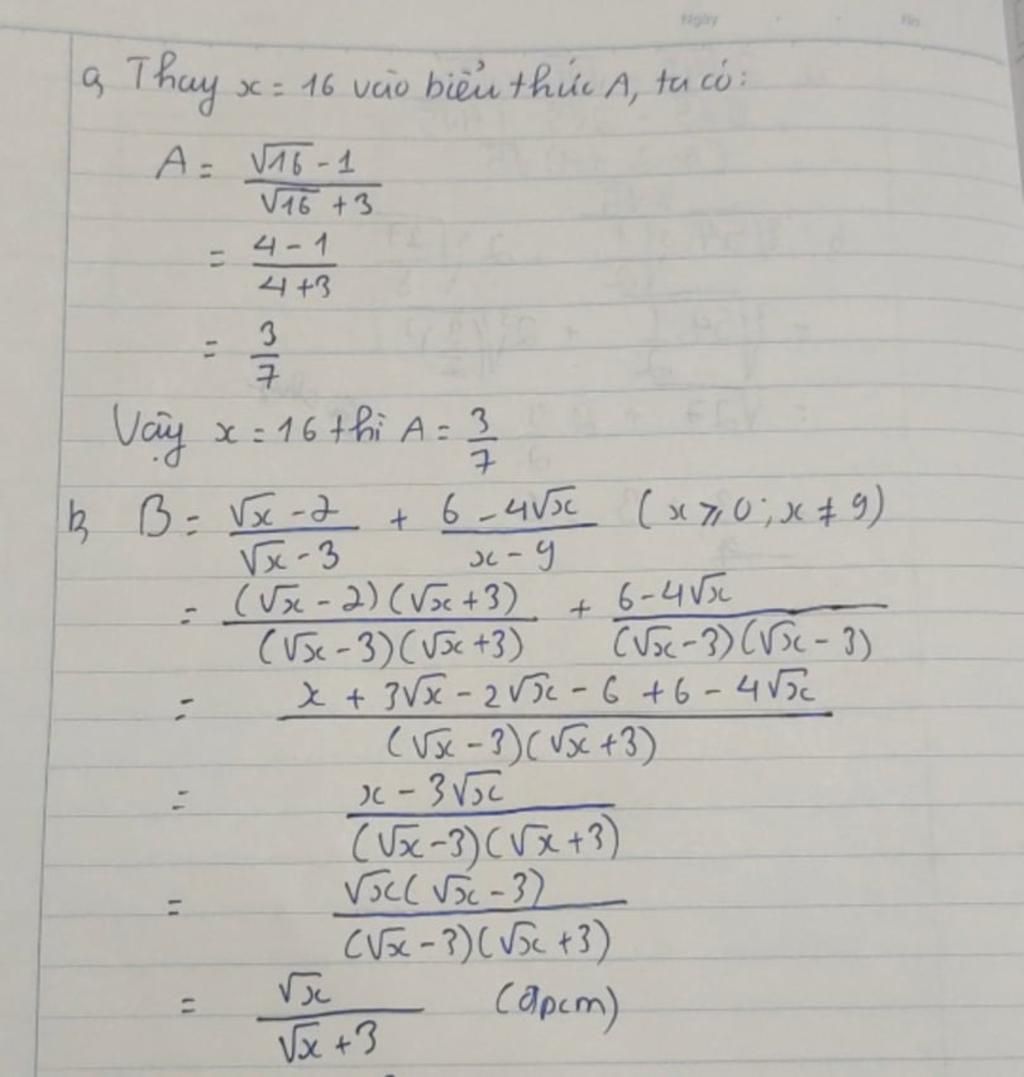 a, Thay x = 16 vào biểu thức A, ta có:
A = \frac{\sqrt{16} - 1}{\sqrt{16} + 3}
= \frac{4 - 1}{4 + 3}
= \frac{3}{7}
Vậy x = 16 thì A = \frac{3}{7}
b, B = \frac{\sqrt{x} - 2}{\sqrt{x} - 3} + \frac{6 - 4\sqrt{x}}{x - 9} (x ⩾ 0; x ≠ 9)
= \frac{(\sqrt{x} - 2)(\sqrt{x} + 3)}{(\sqrt{x} - 3)(\sqrt{x} + 3)} + \frac{6 - 4\sqrt{x}}{(\sqrt{x} - 3)(\sqrt{x} - 3)}
= \frac{x + 3\sqrt{x} - 2\sqrt{x} - 6 + 6 - 4\sqrt{x}}{(\sqrt{x} - 3)(\sqrt{x} + 3)}
= \frac{x - 3\sqrt{x}}{(\sqrt{x} - 3)(\sqrt{x} + 3)}
= \frac{\sqrt{x}(\sqrt{x} - 3)}{(\sqrt{x} - 3)(\sqrt{x} + 3)}
= \frac{\sqrt{x}}{\sqrt{x} + 3} (đpcm)